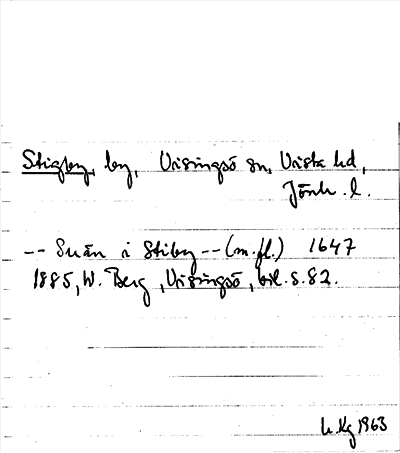 Stigby, by, Visingsö sn, Vista hd,
Jönk. l.
-- Suän i Stiby -- (m.fl.) 1647
1885, W. Berg, Visingsö, bil. s. 82.
1963